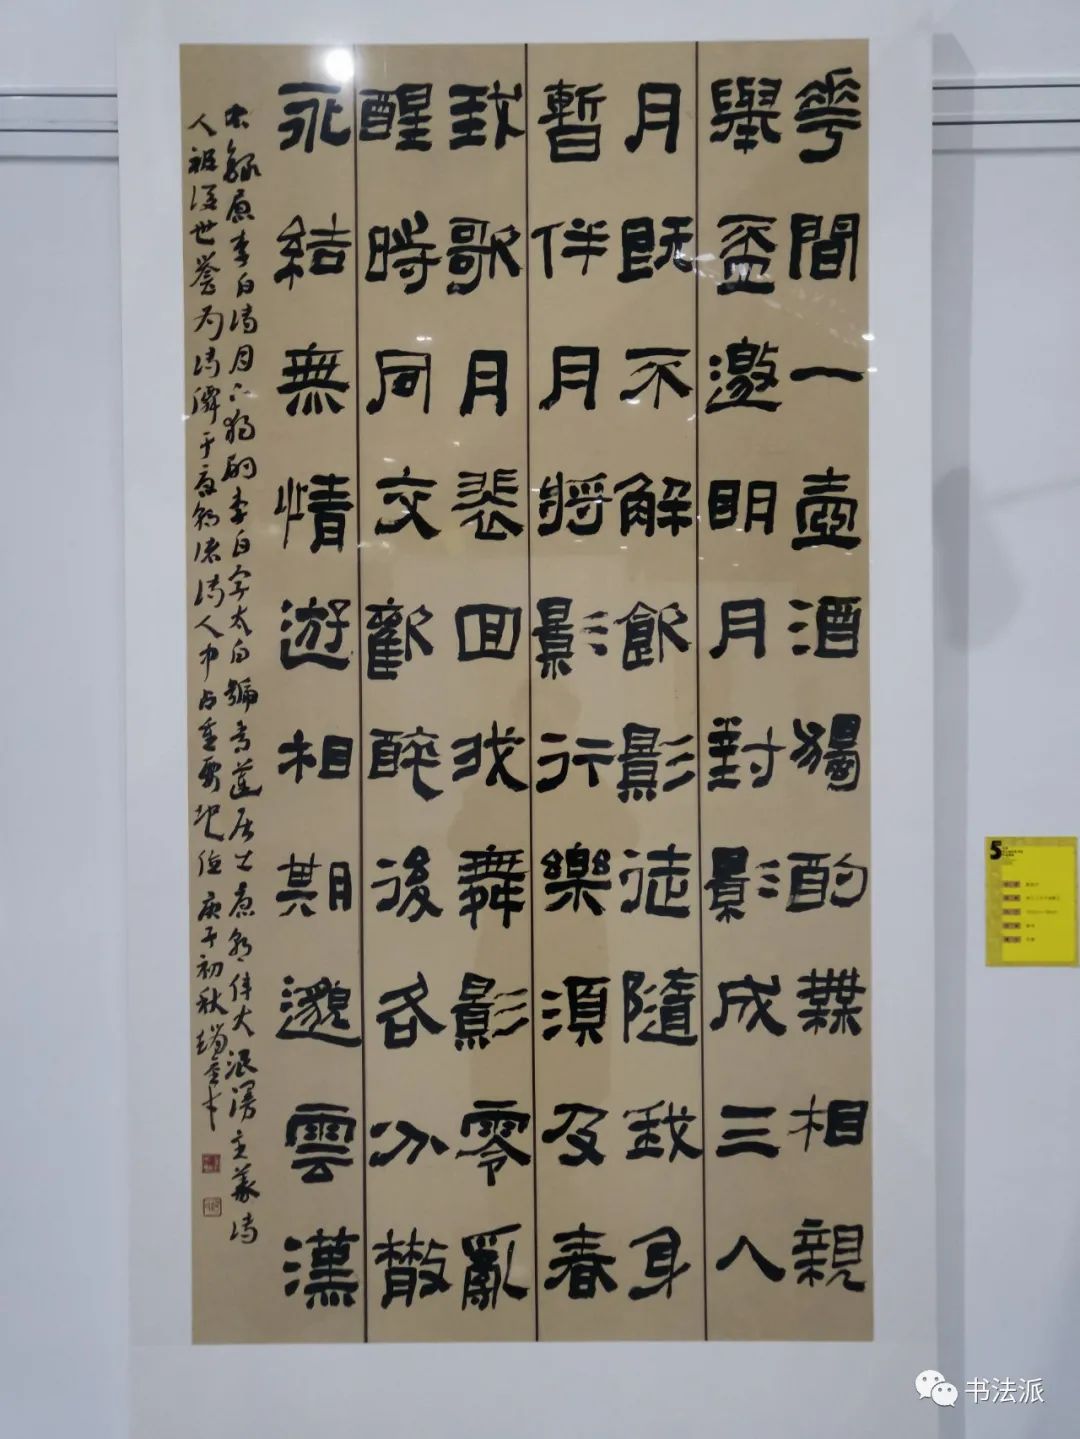 華間一壺酒獨酌無相親
舉盃邀明月對影成三人
月既不解飲影徒隨我身
暫伴月將影行樂須及春
我歌月裴回我舞影零亂
醒時同交歡醉後各分散
永結無情遊相期邈雲漢
錄唐李白詩月下獨酌李白字太白號青蓮居士唐朝偉大浪漫主義詩
人被後世譽为詩僊于唐朝諸詩人中占重要地位庚子初秋
5
书法派